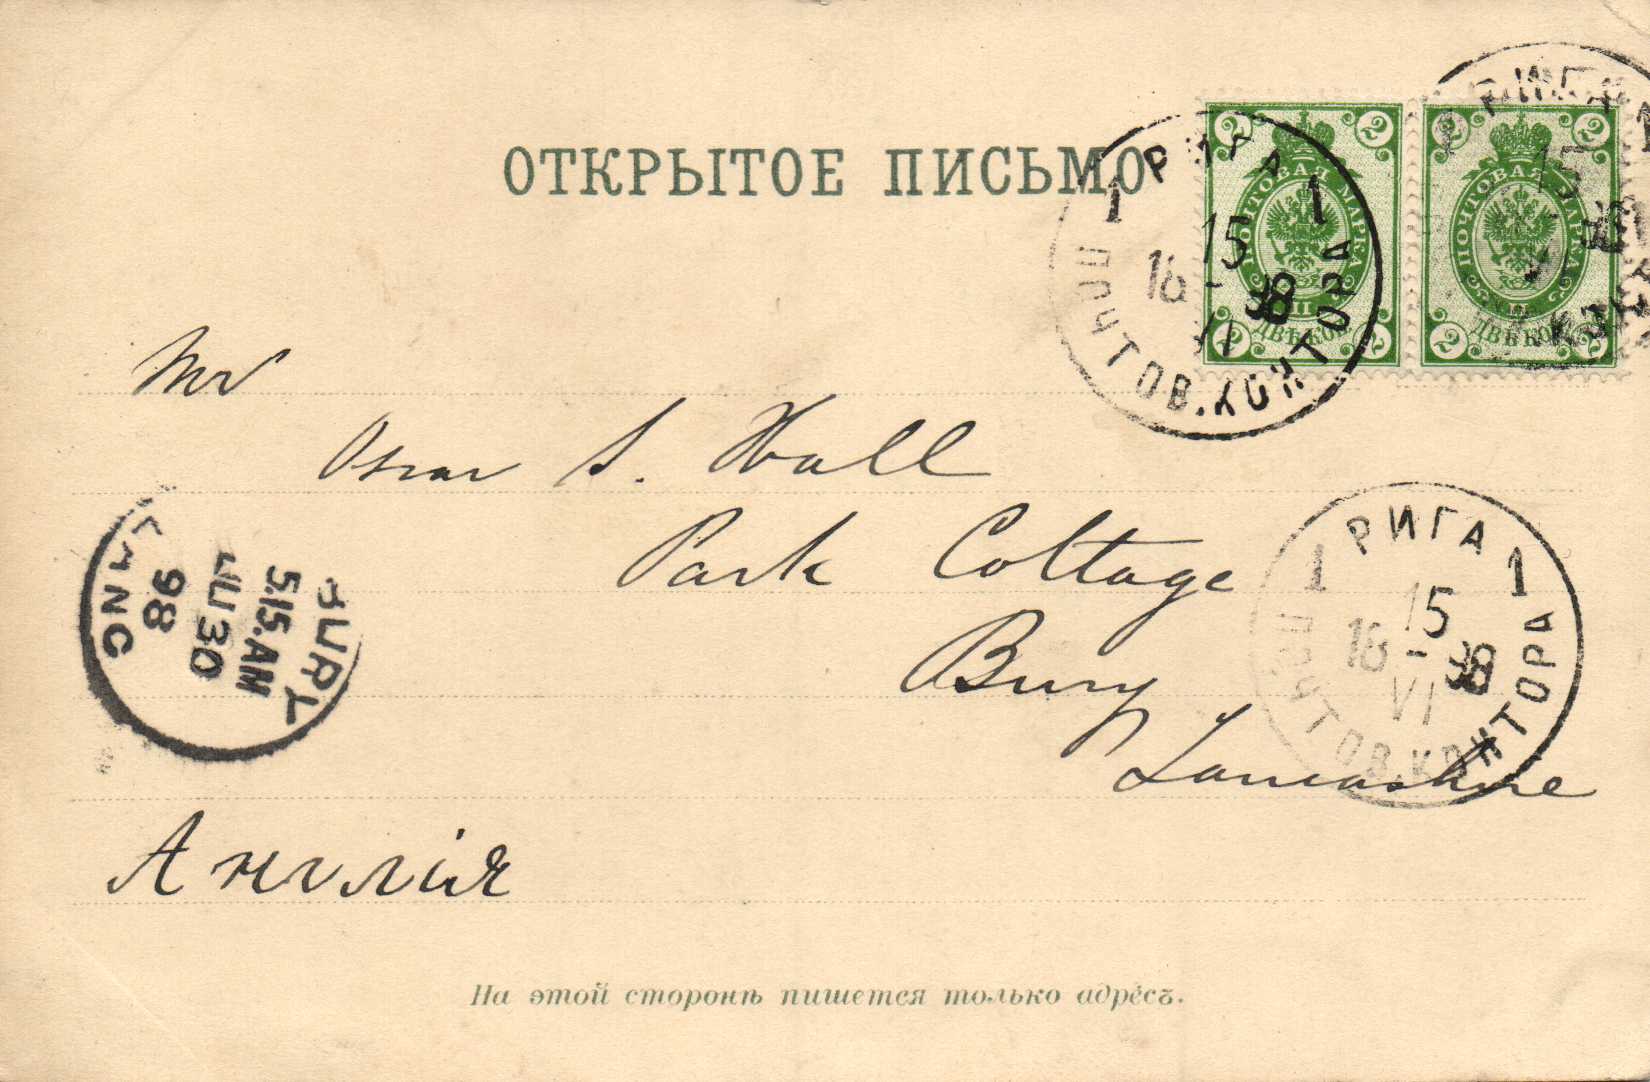 ОТКРЫТОЕ ПИСЬМО
2 2
ПОЧТОВАЯ МАРКА
ДВѢ КОП.
2 2
2 2
ПОЧТОВАЯ МАРКА
ДВѢ КОП.
2 2
РИГА
1 15 1
18 - 98
VI
ПОЧТОВ. КОНТОРА
Mr
Oscar S. Hall
Park Cottage
Bury
Lancashire
РИГА
1 15 1
18 - 98
VI
ПОЧТОВ. КОНТОРА
BURY
5.15.AM
JU 30
98
LANC
Англія
На этой сторонѣ пишется только адресъ.